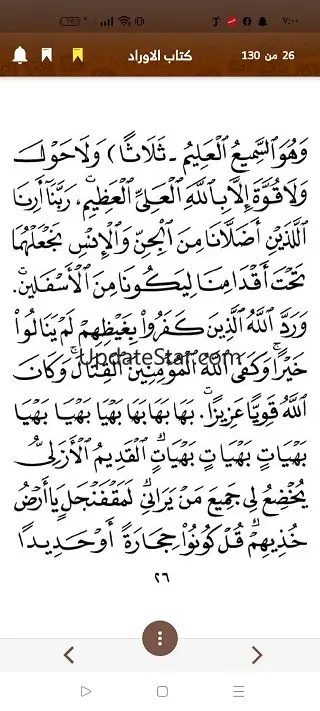 ٧:٠٠
26 من 130
كتاب الاوراد
وَهُوَ السَّمِيعُ الْعَلِيمُ - ثَلَاثًا) وَلَا حَوْلَ
وَلَا قُوَّةَ إِلَّا بِاللَّهِ الْعَلِيِّ الْعَظِيمِ، رَبَّنَا أَرِنَا
اللَّذَيْنِ أَضَلَّانَا مِنَ الْجِنِّ وَالْإِنْسِ نَجْعَلْهُمَا
تَحْتَ أَقْدَامِنَا لِيَكُونَا مِنَ الْأَسْفَلِينَ.
وَرَدَّ اللَّهُ الَّذِينَ كَفَرُوا بِغَيْظِهِمْ لَمْ يَنَالُوا
خَيْرًا وَكَفَى اللَّهُ الْمُؤْمِنِينَ الْقِتَالَ وَكَانَ
UpdateStar.com
اللَّهُ قَوِيًّا عَزِيزًا. بَهَا بَهَا بَهَا بَهْيَا بَهْيَا بَهْيَا
بَهْيَاتٍ بَهْيَاتٍ بَهْيَاتٍ الْقَدِيمُ الْأَزَلِيُّ
يُخْضِعُ لِي جَمِيعَ مَنْ يَرَانِي لَمَقْفَنْجَلٍ يَا أَرْضُ
خُذِيهِمْ قُلْ كُونُوا حِجَارَةً أَوْ حَدِيدًا
٢٦